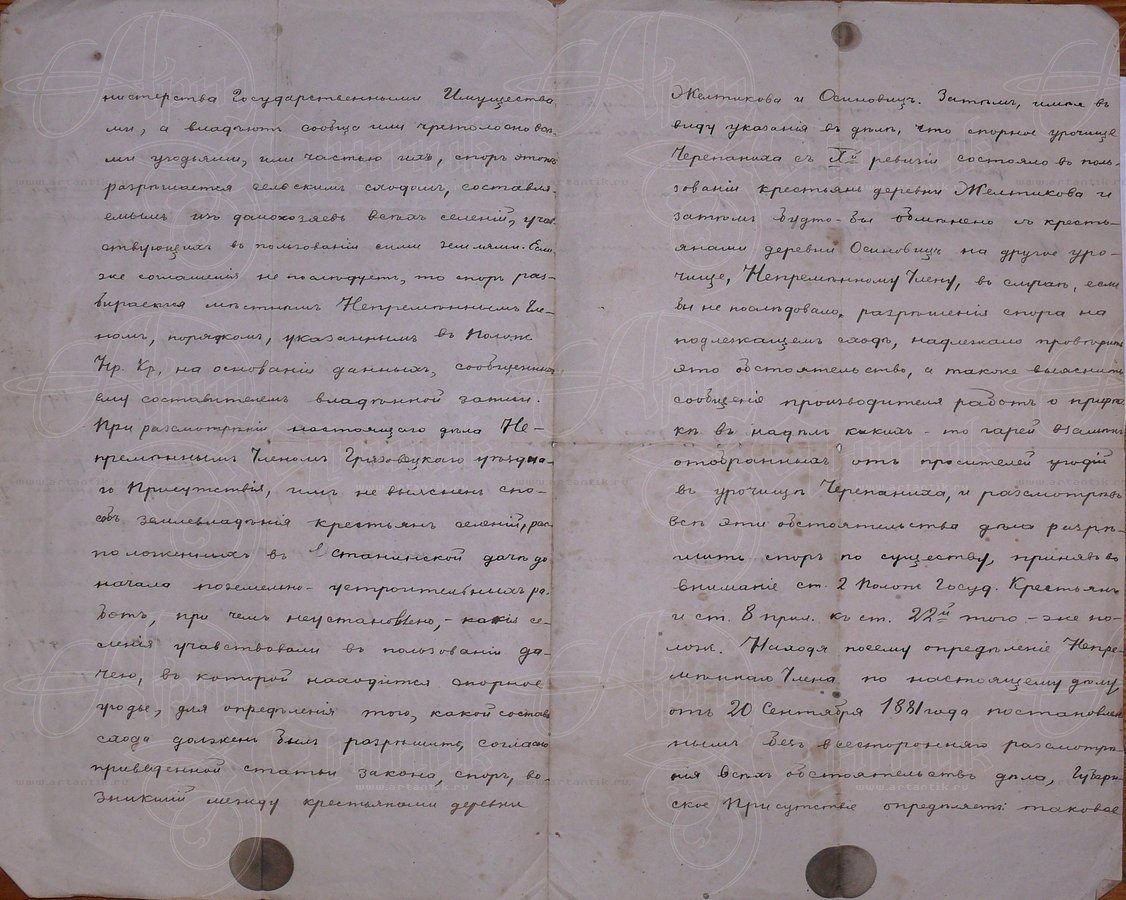 нистерства Государственными Имущества
ми, а владѣютъ сообща или чрезполосно все
ми угодьями, или частью ихъ, споръ этотъ
разрѣшается сельскимъ сходомъ, составля-
емымъ изъ домохозяевъ всѣхъ селеній, уча
ствующихъ въ пользованіи сими землями. Если
же соглашенія не послѣдуетъ, то споръ раз-
бирается мѣстнымъ Непремѣннымъ Чле-
номъ, порядкомъ, указаннымъ въ Полож
Кр. Кр, на основаніи данныхъ, сообщенныхъ
ему составителемъ владѣнной записи.
При разсмотрѣніи настоящаго дѣла Не-
премѣннымъ Членомъ Грязовецкаго уѣздна-
го Присутствія, имъ не выясненъ спо-
собъ землевладѣнія крестьянъ селеній, рас
положенныхъ въ Станинской дачѣ до
начала поземельно-устроительныхъ ра-
ботъ, при чемъ неустановлено, - какія се-
ленія участвовали въ пользованіи да-
чею, въ которой находится спорное
угодье, для опредѣленія того, какой составъ
схода долженъ былъ разрѣшить, согласно
приведенной статьи закона, споръ, во-
зникшій между крестьянами деревни
Желтикова и Осиновицъ. Затѣмъ, имѣя въ
виду указанія въ дѣлѣ, что спорное урочище
Черепаниха съ Xй ревизіи состояло въ поль-
зованіи крестьянъ деревни Желтикова и
затѣмъ будто-бы обмѣнено съ кресть-
янами деревни Осиновицъ на другое уро-
чище, Непремѣнному Члену, въ случаѣ, если
бы не послѣдовало, разрѣшенія спора на
подлежащемъ сходѣ, надлежало провѣрить
это обстоятельство, а также выяснить
сообщеніе производителя работъ о прирѣз
кѣ въ надѣлъ какихъ-то гарей взамѣнъ
отобранныхъ отъ просителей угодій
въ урочищѣ Черепаниха, и разсмотрѣвъ
всѣ эти обстоятельства дѣла разрѣ-
шить споръ по существу, принявъ во
вниманіе ст. 2 Полож Госуд. Крестьянъ
и ст. 8 прил. къ ст. 22й того-же по-
лож. Находя посему опредѣленіе Непре-
мѣннаго Члена по настоящему дѣлу
отъ 20 Сентября 1881 года постановлен
нымъ безъ всесторонняго разсмотрѣ-
нія всѣхъ обстоятельствъ дѣла, Губерн
ское Присутствіе опредѣляетъ: таковое
www.artantik.ru